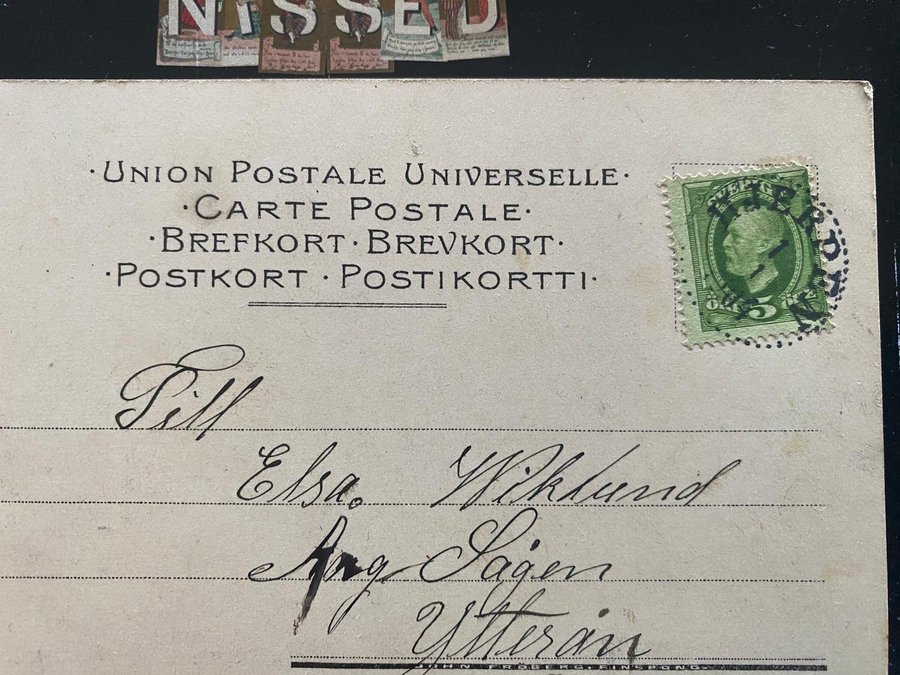 NISSED
·UNION POSTALE UNIVERSELLE·
·CARTE POSTALE·
·BREFKORT·BREVKORT·
·POSTKORT·POSTIKORTTI·
SVERIGE
HJERPEN
1
1
5
Till
Elsa. Wiklund
Ång Sågen
Ytterån
JOHN FRÖBERG, FINSPONG